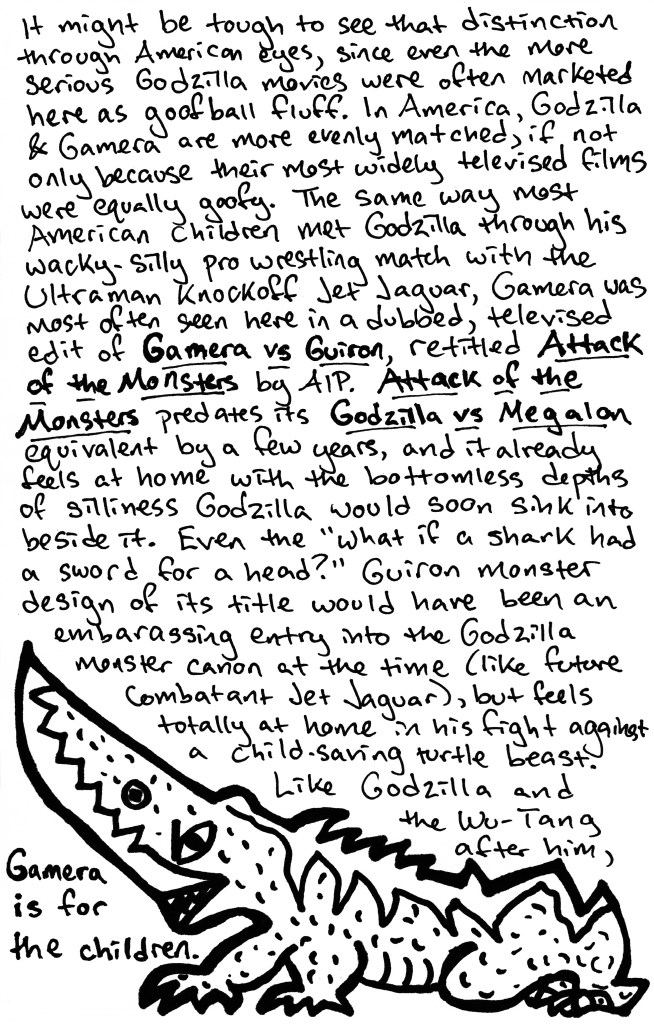 It might be tough to see that distinction
through American eyes, since even the more
serious Godzilla movies were often marketed
here as goofball fluff. In America, Godzilla
& Gamera are more evenly matched, if not
only because their most widely televised films
were equally goofy. The same way most
American children met Godzilla through his
wacky-silly pro wrestling match with the
Ultraman Knockoff Jet Jaguar, Gamera was
most often seen here in a dubbed, televised
edit of Gamera vs Guiron, retitled Attack
of the Monsters by AIP. Attack of the
Monsters predates its Godzilla vs Megalon
equivalent by a few years, and it already
feels at home with the bottomless depths
of silliness Godzilla would soon sink into
beside it. Even the "what if a shark had
a sword for a head?" Guiron monster
design of its title would have been an
embarassing entry into the Godzilla
monster canon at the time (like future
combatant Jet Jaguar), but feels
totally at home in his fight against
a child-saving turtle beast.
Like Godzilla and
the Wu-Tang
after him,
Gamera
is for
the children.